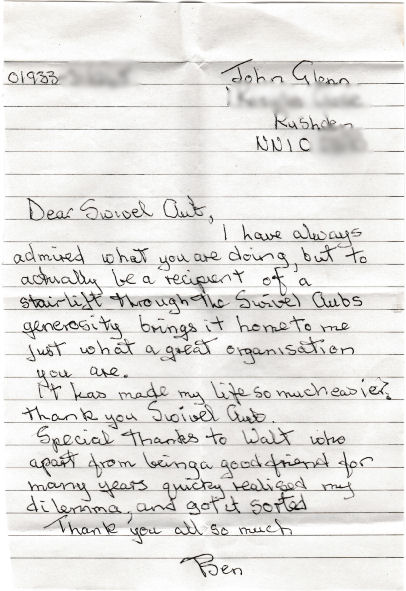 01933
John Glenn
Rushden
NN1C
Dear Swivel Club,
I have always
admired what you are doing, but to
actually be a recipient of a
stairlift through the Swivel Clubs
generosity brings it home to me
just what a great organisation
you are.
it has made my life so much easier.
thank you Swivel Club.
Special thanks to Walt who
apart from being a good friend for
many years quicky realised my
dilemma, and got it sorted
Thank you all so much
Ben